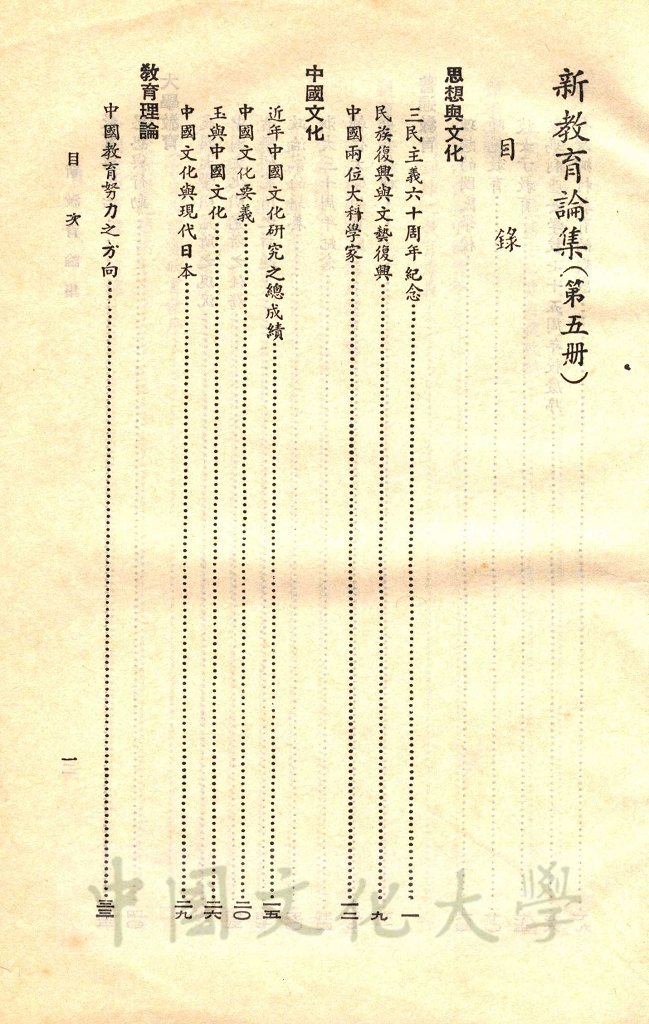 新教育論集(第五册)
目錄
思想與文化
三民主義六十周年紀念……一
民族復興與文藝復興……九
中國兩位大科學家……一二
中國文化
近年中國文化研究之總成績……一五
中國文化要義……二〇
玉與中國文化……二六
中國文化與現代日本……二九
教育理論
中國教育努力之方向……三三
目次
一
中國文化大學